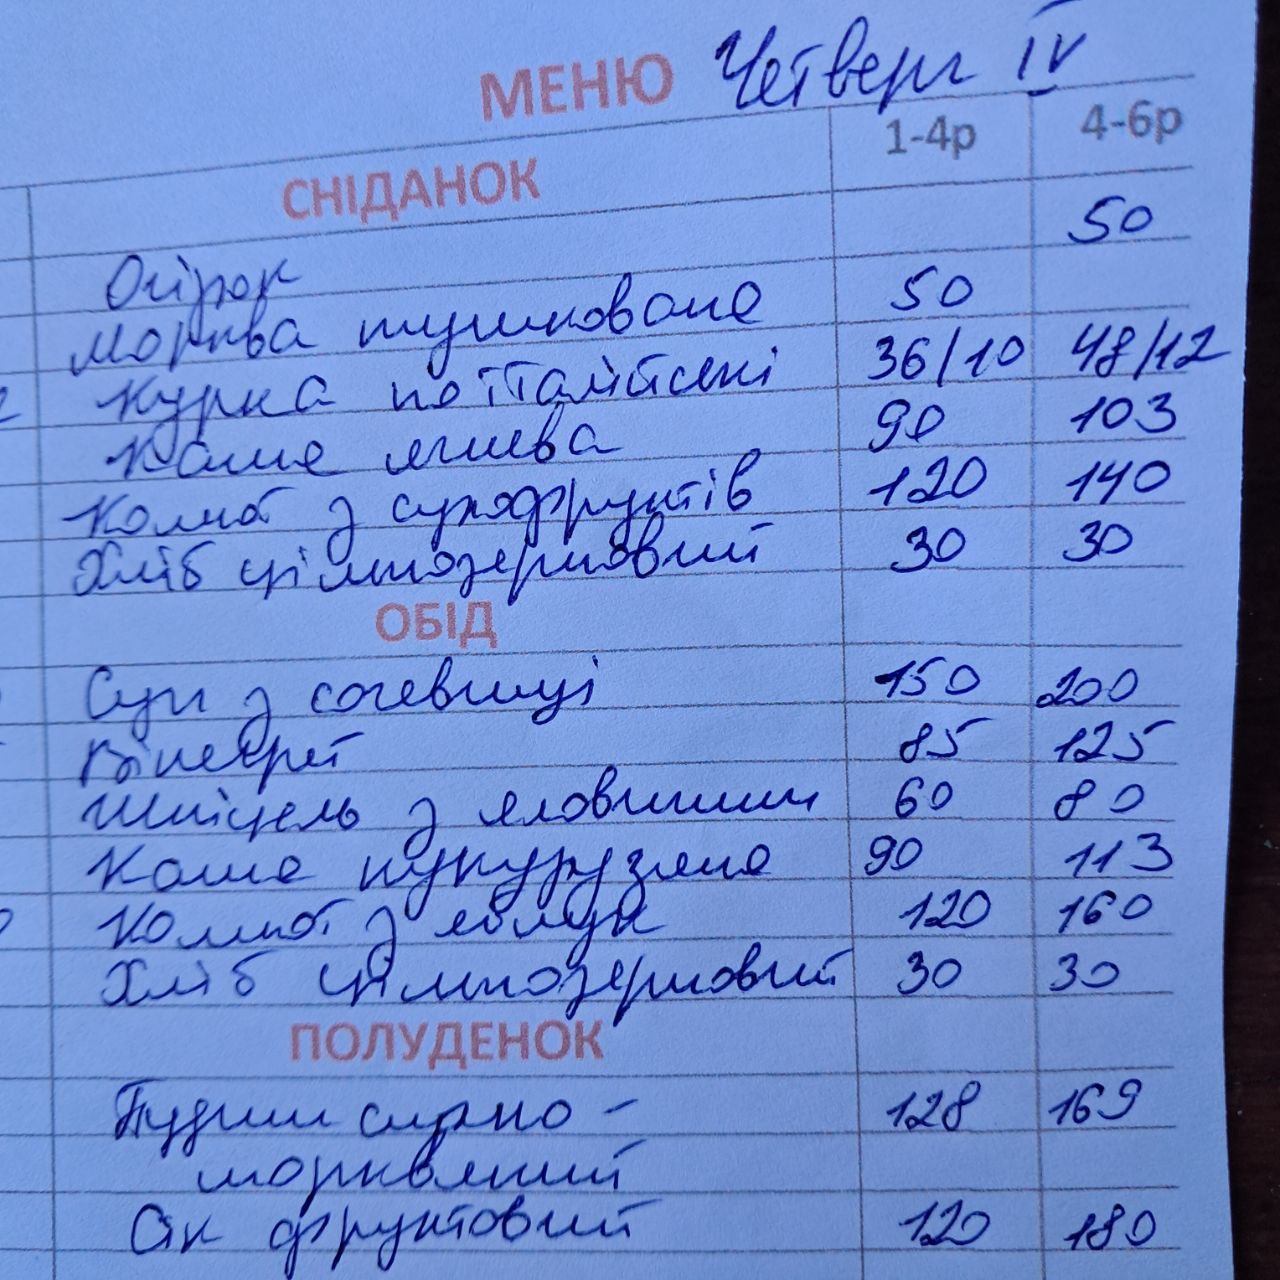 МЕНЮ Четверг IV
СНІДАНОК 1-4р 4-6р
Огірок 50
Морква тушкована 50
Курка по італійськи 36/10 48/12
Каша ячнева 90 103
Компот з сухофруктів 120 140
Хліб цільнозерновий 30 30
ОБІД
Суп з сочевиці 150 200
Вінегрет 85 125
Шніцель з яловичини 60 80
Каша кукурузяна 90 113
Компот з яблук 120 160
Хліб цільнозерновий 30 30
ПОЛУДЕНОК
Пудинг сирно- 128 169
морквяний
Сік фруктовий 120 180